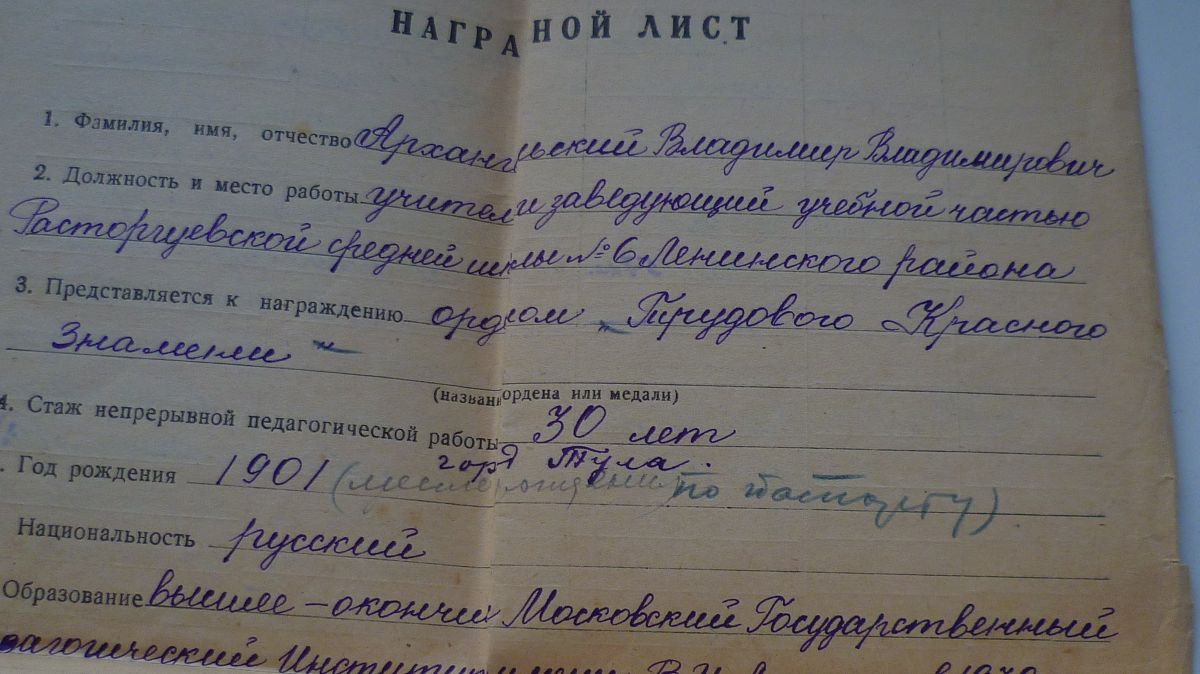 НАГРАДНОЙ ЛИСТ
1. Фамилия, имя, отчество Архангельский Владимир Владимирович
2. Должность и место работы учитель и заведующий учебной частью
Расторгуевской средней школы № 6 Ленинского района
3. Представляется к награждению орденом „Трудового Красного
Знамени“
(название ордена или медали)
4. Стаж непрерывной педагогической работы 30 лет
город Тула.
. Год рождения 1901 (место рождения по паспорту)
Национальность русский
Образование высшее – окончил Московский Государственный
дагогический Институт имени В.И.